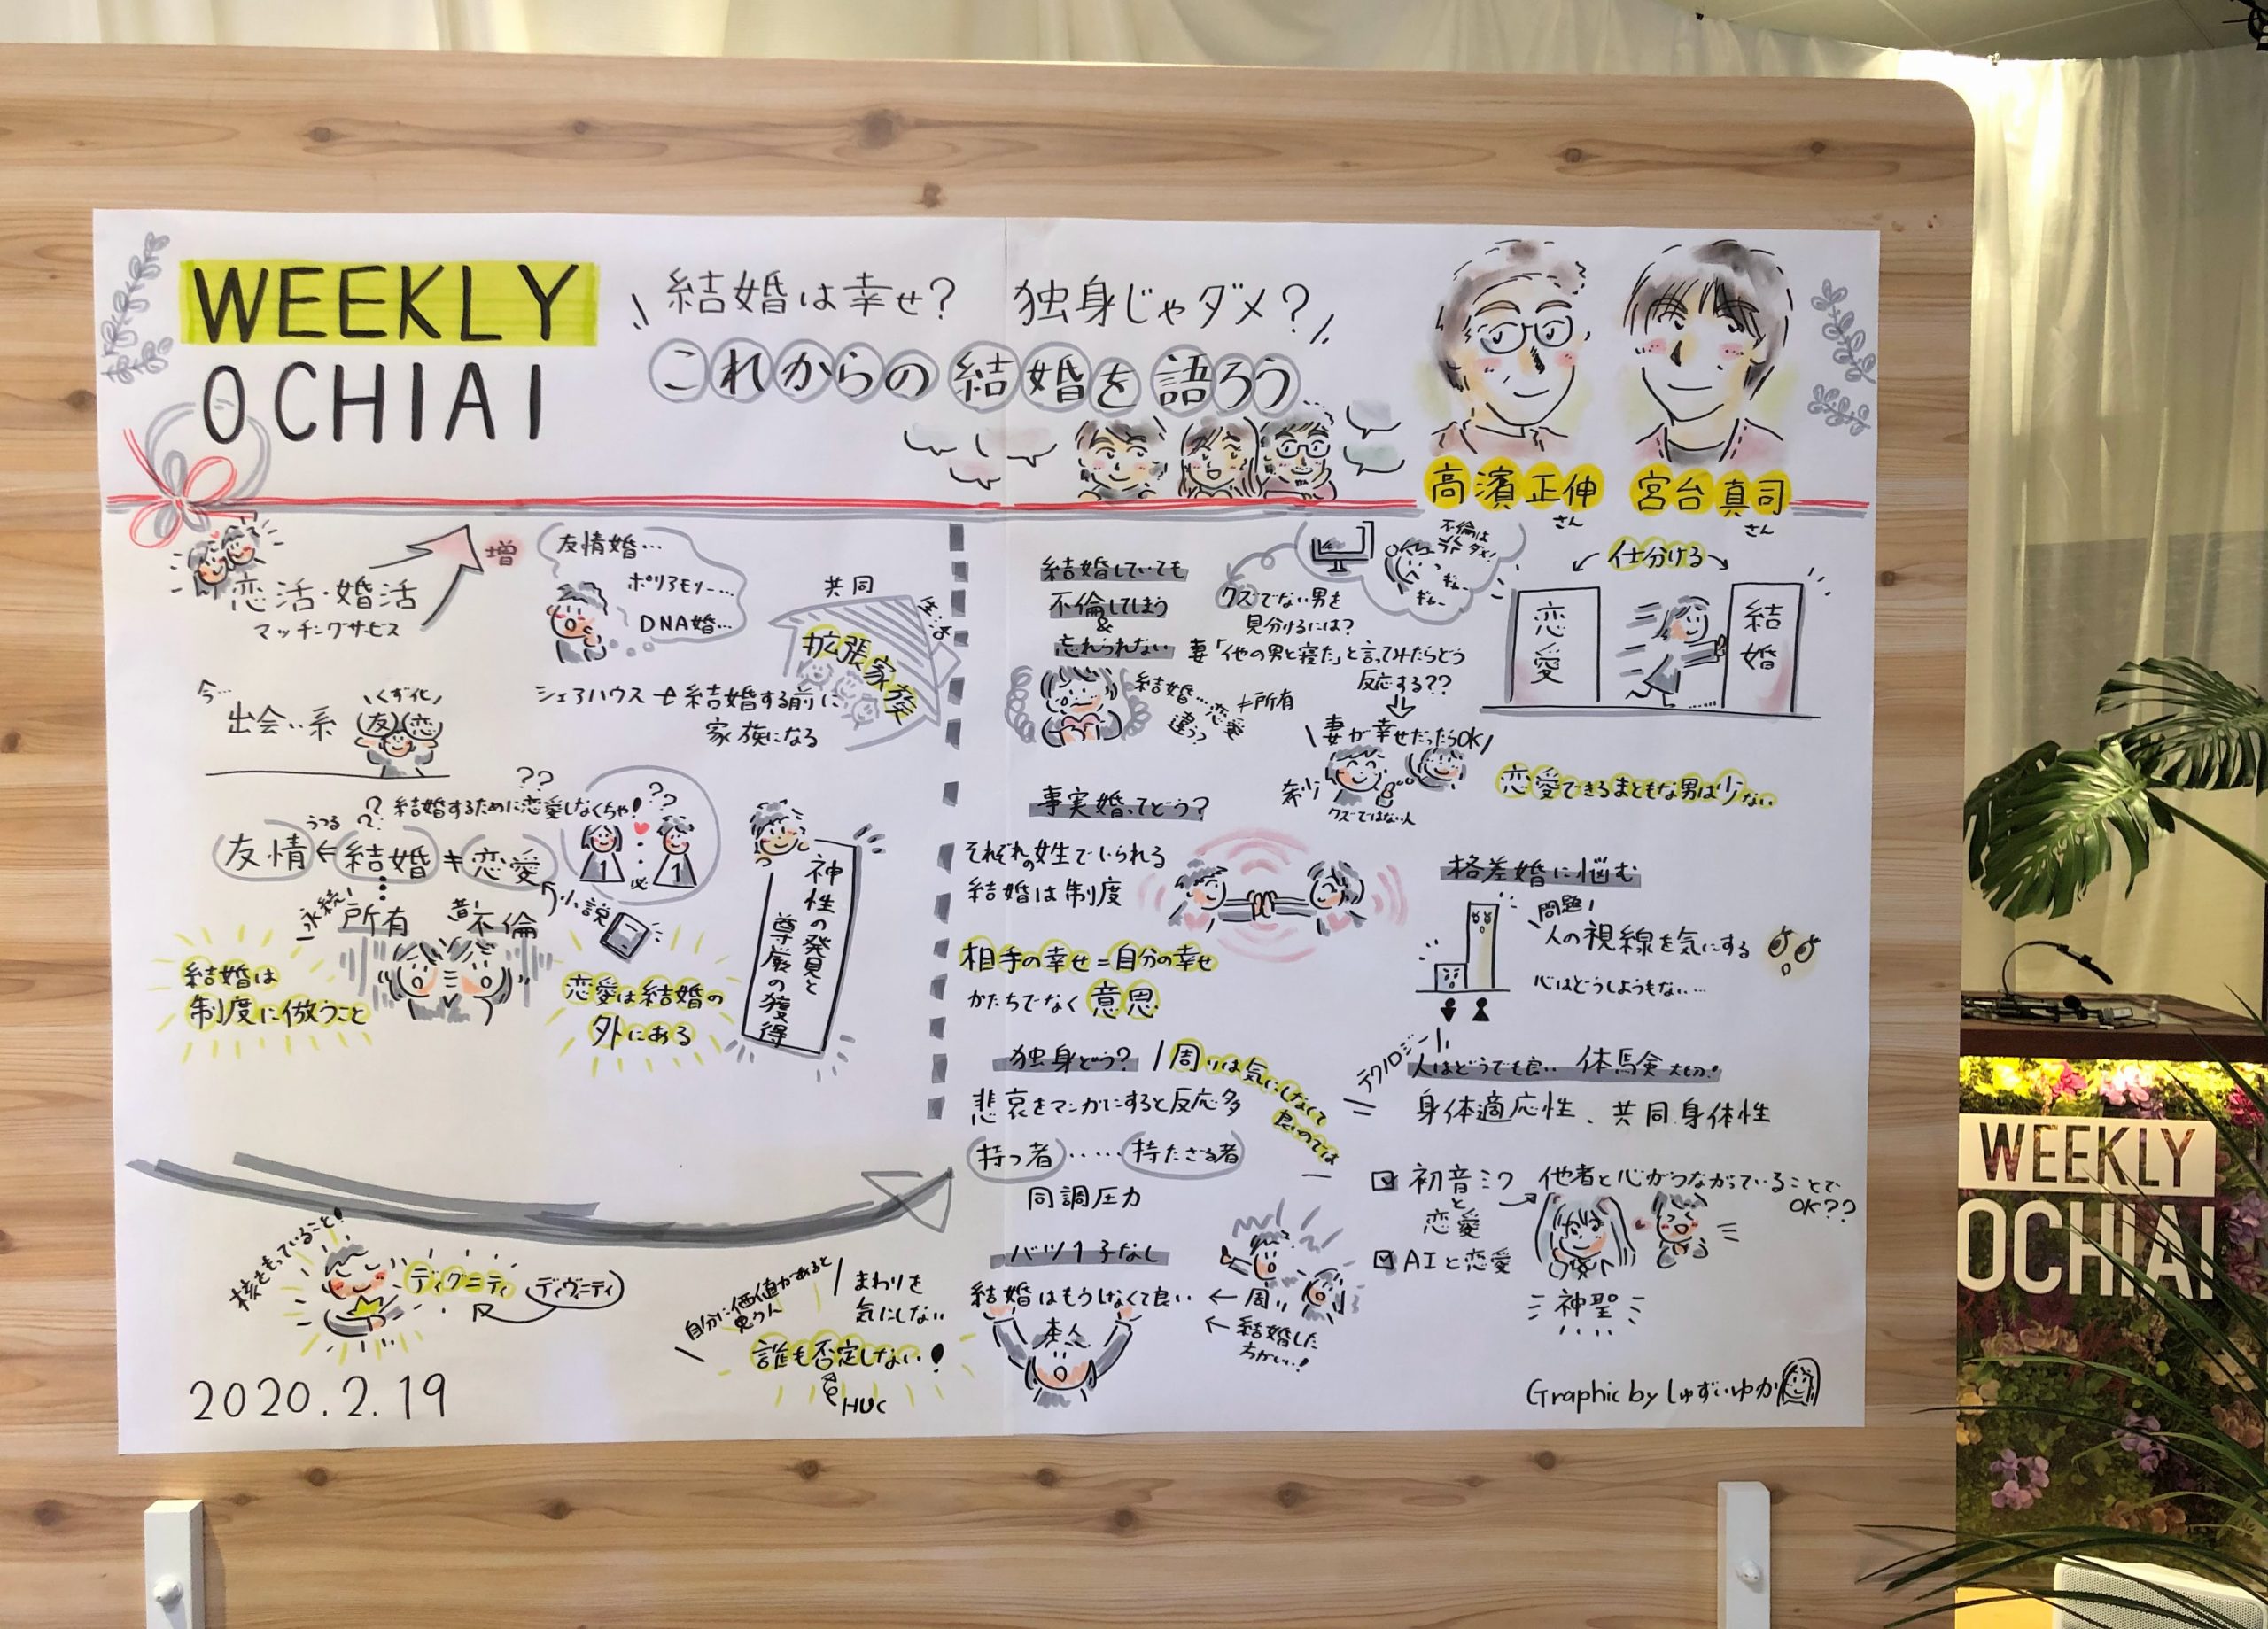 WEEKLY
OCHIAI
結婚は幸せ? 独身じゃダメ?
これからの結婚を語ろう
高濱正伸
さん
宮台真司
さん
恋活・婚活
マッチングサービス
増
友情婚…
ポリアモリー…
DNA婚…
共同
生活
拡張家族
シェアハウス
結婚する前に
家族になる
今…
出会い系
くず化
友 恋
??
結婚するために恋愛しなくちゃ!
??
うつる
友情←結婚≠恋愛
永続!
所有
不倫
小説
1 1
結婚は
制度に倣うこと
恋愛は結婚の
外にある
神性の発見と
尊厳の獲得
核をもっていること!
ディグニティ
ディヴィニティ
自分に価値があると
思う人
まわりを
気にしない
誰も否定しない!
HUC
2020.2.19
結婚していても
不倫してしまう
&
忘れられない
結婚…恋愛
違う?
≠所有
不倫は
ダメ!
クズでない男を
見分けるには?
妻「他の男と寝た」と言ってみたらどう
反応する??
妻が幸せだったらOK
クズではない人
仕分ける
恋愛
結婚
恋愛できるまともな男は少ない
事実婚ってどう?
それぞれの姓でいられる
結婚は制度
相手の幸せ=自分の幸せ
かたちでなく意思
格差婚に悩む
問題!
人の視線を気にする
心はどうしようもない…
独身どう?
周りは気にしなくて
良いのでは
悲哀をマンガにすると反応多
持つ者……持たざる者
同調圧力
テクノロジー
人はどうでも良い 体験大切!
身体適応性、共同身体性
バツ1子なし
結婚はもうしなくて良い
本人
←周り
←結婚した
方がいい!
初音ミク
と
恋愛
AIと恋愛
他者と心がつながっていることで
OK??
神聖
Graphic by しゅずいゆか
WEEKLY
OCHIAI